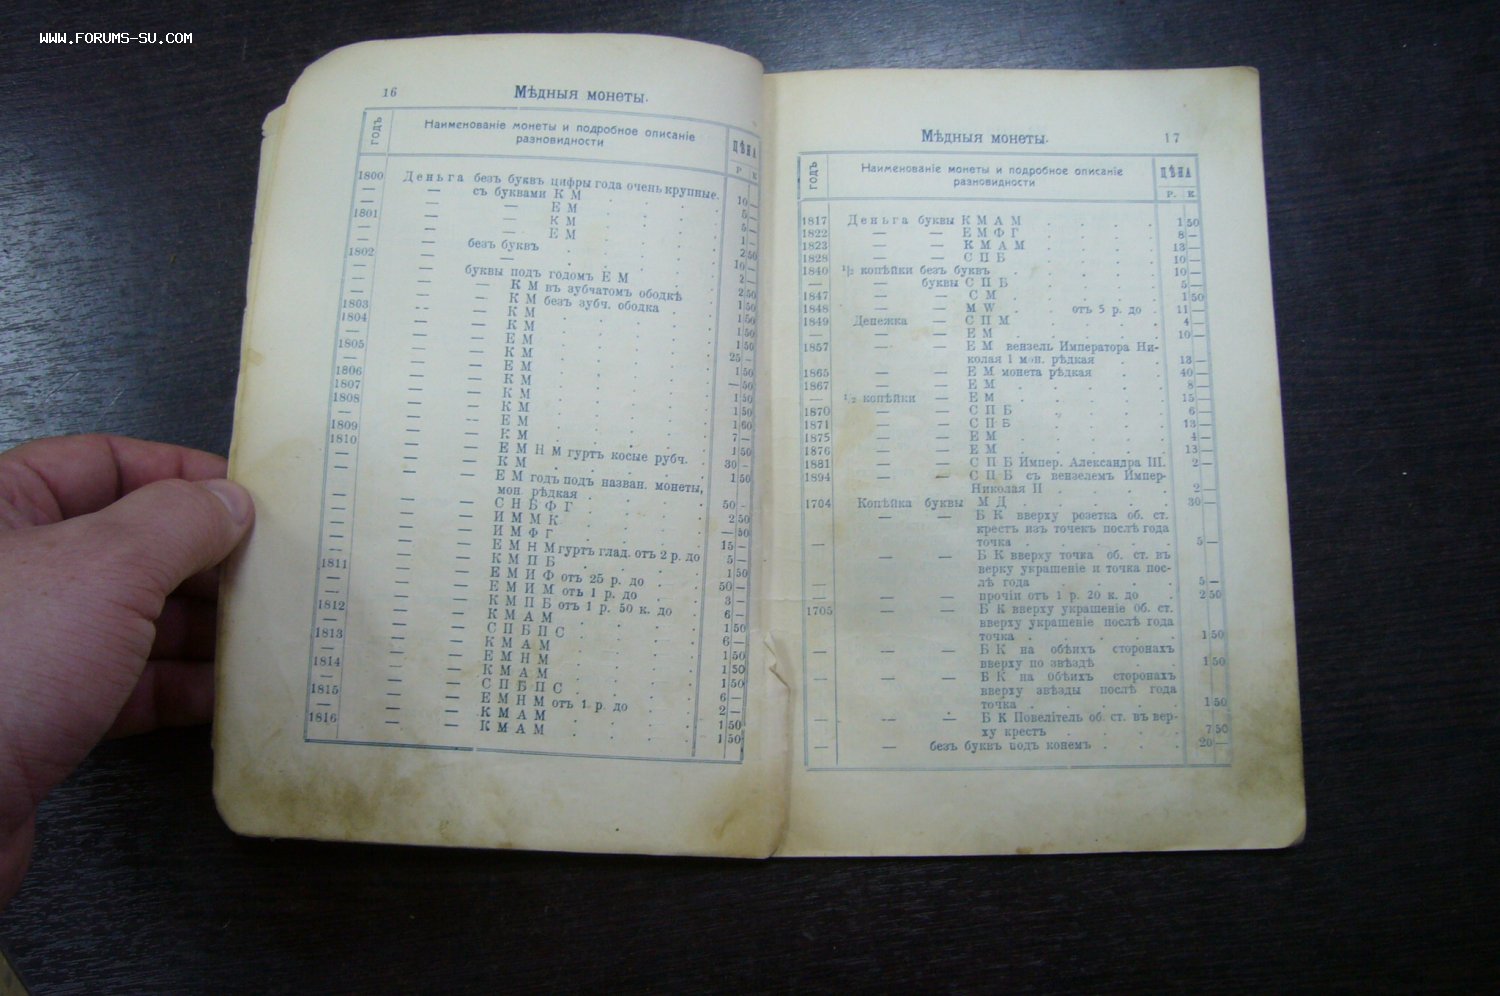 www.forums-su.com
16 Мѣдныя монеты.
ГОДЪ Наименованіе монеты и подробное описаніе ЦѢНА
разновидности
Р К
1800 Деньга безъ буквъ цифры года очень крупные. 10 —
— — съ буквами К М 5 —
— — — Е М 5 —
1801 — — К М 1 —
— — — Е М 2 50
— — безъ буквъ 10 —
1802 — —
— — буквы подъ годомъ Е М 2 —
— — К М въ зубчатомъ ободкѣ 2 50
— — К М безъ зубч. ободка 1 50
1803 — — К М 1 50
1804 — — К М 1 50
— — — Е М 1 50
1805 — — К М 25 —
— — — Е М 1 50
1806 — — К М — 50
1807 — — К М 1 50
1808 — — К М 1 50
— — — Е М 1 60
1809 — — К М 7 —
1810 — — Е М Н М гуртъ косые рубч. 1 50
— — — К М 30 —
— — — Е М годъ подъ назван. монеты, 1 50
мон. рѣдкая
— — — С Н Б Ф Г 50 —
— — — И М М К 2 50
— — — И М Ф Г — 50
— — — Е М Н М гуртъ глад. отъ 2 р. до 15 —
1811 — — К М П Б 5 —
— — — Е М И Ф отъ 25 р. до 1 50
— — — Е М И М отъ 1 р. до 50 —
1812 — — К М П Б отъ 1 р. 50 к. до 3 —
— — — К М А М 6 —
1813 — — С П Б П С 1 50
— — — К М А М 6 —
1814 — — Е М Н М 1 50
— — — К М А М 1 50
1815 — — С П Б П С 1 50
— — — Е М Н М отъ 1 р. до 6 —
1816 — — К М А М 2 —
— — К М А М 1 50
1 50
Мѣдныя монеты. 17
ГОДЪ Наименованіе монеты и подробное описаніе ЦѢНА
разновидности
Р. К
1817 Деньга буквы К М А М 1 50
1822 — — Е М Ф Г 8 —
1823 — — К М А М 13 —
1828 — — С П Б 10 —
1840 1/2 копѣйки безъ буквъ 10 —
— — буквы С П Б 5 —
1847 — — С М 1 50
1848 — — M W отъ 5 р. до 11 —
1849 Денежка — С П М 4 —
— — — Е М 10 —
1857 — — Е М вензель Императора Ни-
колая 1 мон. рѣдкая 13 —
1865 — — Е М монета рѣдкая 40 —
1867 — — Е М 8 —
— 1/2 копѣйки — Е М 15 —
1870 — — С П Б 6 —
1871 — — С П Б 13 —
1875 — — Е М 4 —
1876 — — Е М 13 —
1881 — — С П Б Импер. Александра III. 2 —
1894 — — С П Б съ вензелемъ Импер-
Николая II 2 —
1704 Копѣйка буквы М Д 30 —
— — Б К вверху розетка об. ст.
крестъ изъ точекъ послѣ года
— точка 5 —
— — Б К вверху точка об. ст. въ
верху украшеніе и точка пос-
— лѣ года 5 —
— — — прочіи отъ 1 р. 20 к. до 2 50
1705 — — Б К вверху украшеніе об. ст.
вверху украшеніе послѣ года
точка 1 50
— — — Б К на обѣихъ сторонахъ
вверху по звѣздѣ 1 50
— — — Б К на обѣихъ сторонахъ
вверху звѣзды послѣ года
точка 1 50
— — — Б К Повелітель об. ст. въ вер-
ху крестъ 7 50
— — безъ буквъ подъ конемъ 20 —